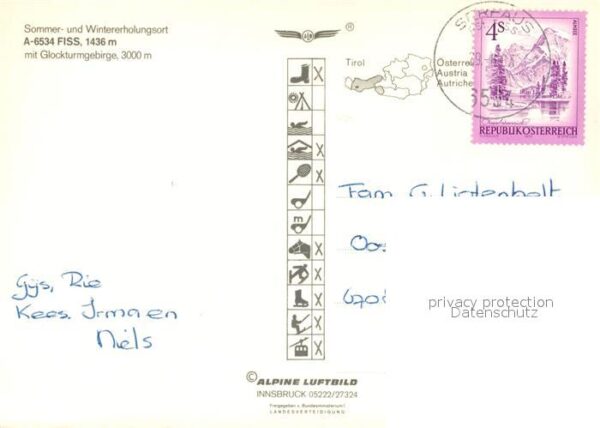 Sommer- und Wintererholungsort
A-6534 FISS, 1436 m
mit Glockturmgebirge, 3000 m
Tirol
Österrei
Austria
Autriche
SERFAUS
6534
4S
ALMSEE
REPUBLIK ÖSTERREICH
m
Fam G. Lichtenbelt
Oos
6708
Gijs, Rie
Kees, Irma en
Niels
privacy protection
Datenschutz
© ALPINE LUFTBILD
INNSBRUCK 05222/27324
Freigegeben v. Bundesministerium f.
LANDESVERTEIDIGUNG